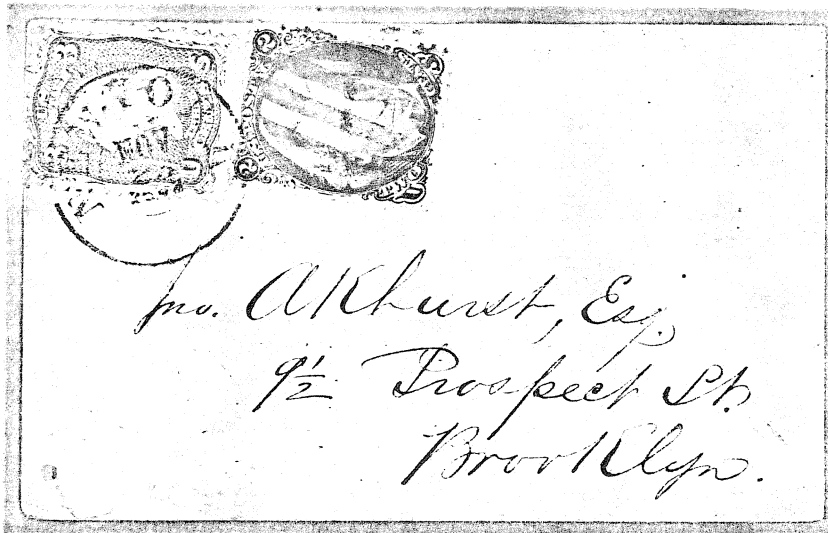 NOV
Jno. Akhurst, Esq.
9½ Prospect St.
Brooklyn.